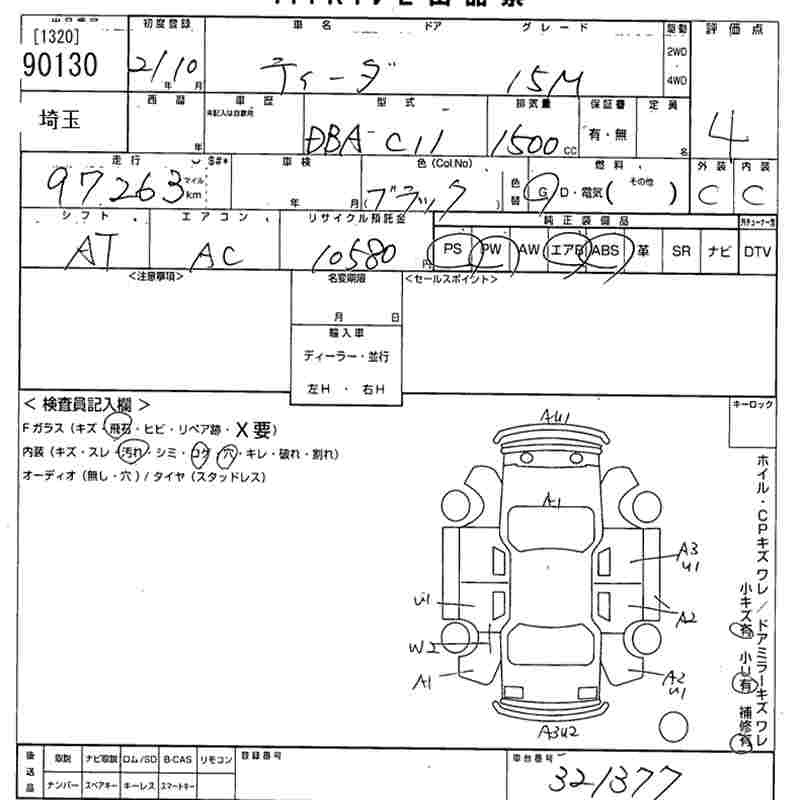 出品票
[1320] 初度登録 車名 ドア グレード 駆動 評価点
90130 21/10 年 月 ティーダ 15M 2WD 4WD 4
埼玉 西暦 年 車歴 未記入は自家用 型式 DBA-C11 排気量 1500cc 保証書 有・無 定員 名
走行 97263 マイル km S#* 車検 年 月 色(Col.No) (ブラック) 色替 燃料 G D・電気( その他 ) 外装 C 内装 C
シフト AT エアコン AC リサイクル預託金 10580円 純正装備品 PS PW AW エアB ABS 革 SR ナビ DTV
<注意事項> 名変期限 月 日 <セールスポイント>
輸入車
ディーラー・並行
左H ・ 右H
<検査員記入欄> キーロック
Fガラス(キズ・飛石・ヒビ・リペア跡・X要)
内装(キズ・スレ・汚れ・シミ・コゲ・穴・キレ・破れ・割れ)
オーディオ(無し・穴)/タイヤ(スタッドレス)
AU1
A1
A3
U1
U1
A2
W2
A1
A2
U1
A3U2
ホイル・CPキズ ワレ/ドアミラーキズ ワレ
小キズ有 小U有 補修有
後送品 取説 ナビ取説 ロム/SD B-CAS リモコン 登録番号 車台番号
ナンバー スペアキー キーレス スマートキー 321377